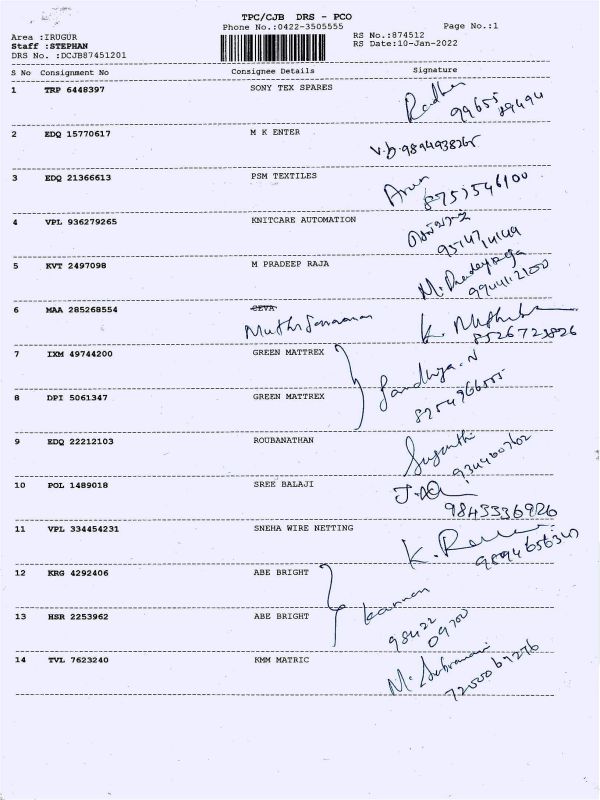 TPC/CJB DRS - PCO
Phone No.:0422-3505555 Page No.:1
Area :IRUGUR RS No.:874512
Staff :STEPHAN RS Date:10-Jan-2022
DRS No. :DCJB87451201
S No Consignment No Consignee Details Signature
1 TRP 6448397 SONY TEX SPARES Radha
99655 89494
2 EDQ 15770617 M K ENTER
9894938265
3 EDQ 21366613 PSM TEXTILES Arun
4 VPL 936279265 KNITCARE AUTOMATION
5 KVT 2497098 M PRADEEP RAJA
6 MAA 285268554 CEVA
8526723826
7 IXM 49744200 GREEN MATTREX
Sandhya.N
8 DPI 5061347 GREEN MATTREX
9 EDQ 22212103 ROUBANATHAN Suganthi
10 POL 1489018 SREE BALAJI
9843336926
11 VPL 334454231 SNEHA WIRE NETTING
12 KRG 4292406 ABE BRIGHT
Kannan
13 HSR 2253962 ABE BRIGHT
98422
09700
14 TVL 7623240 KMM MATRIC